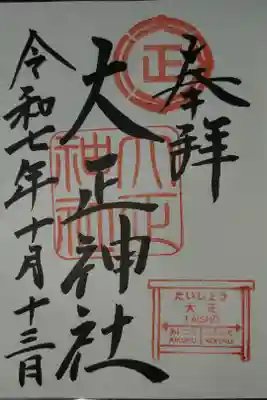 奉拝
大正神社
令和七年十月十三日
正
大正神社
たいしょう
大正
TAISHO